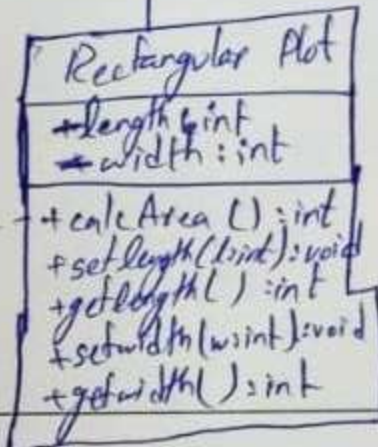 Rectangular Plot
+length : int
+width : int
+calcArea () : int
+setlength(l:int):void
+getlength() : int
+setwidth(w:int):void
+getwidth() : int